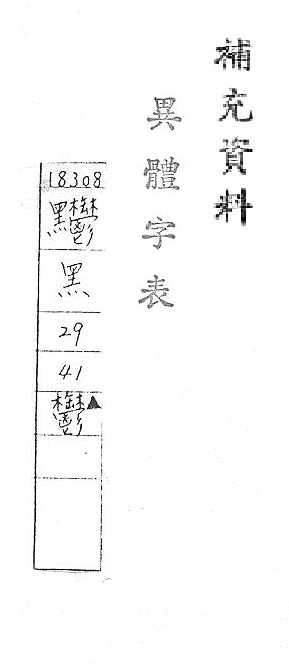 補充資料
異體字表
18308
黑
29
41
鬱▲